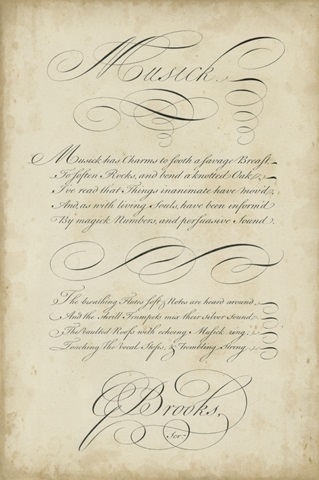 Musick
Musick has Charms to sooth a savage Breast
To soften Rocks, and bend a knotted Oak
I've read that Things inanimate have mov'd
And, as with living Souls, have been inform'd
By magick Numbers, and persuasive Sound
The breathing Flutes soft Notes are heard around
And the Shrill Trumpets mix their silver Sound
The vaulted Roofs with echoing Musick ring
Touching the vocal Stops, & trembling String
G Brooks,
Scr.